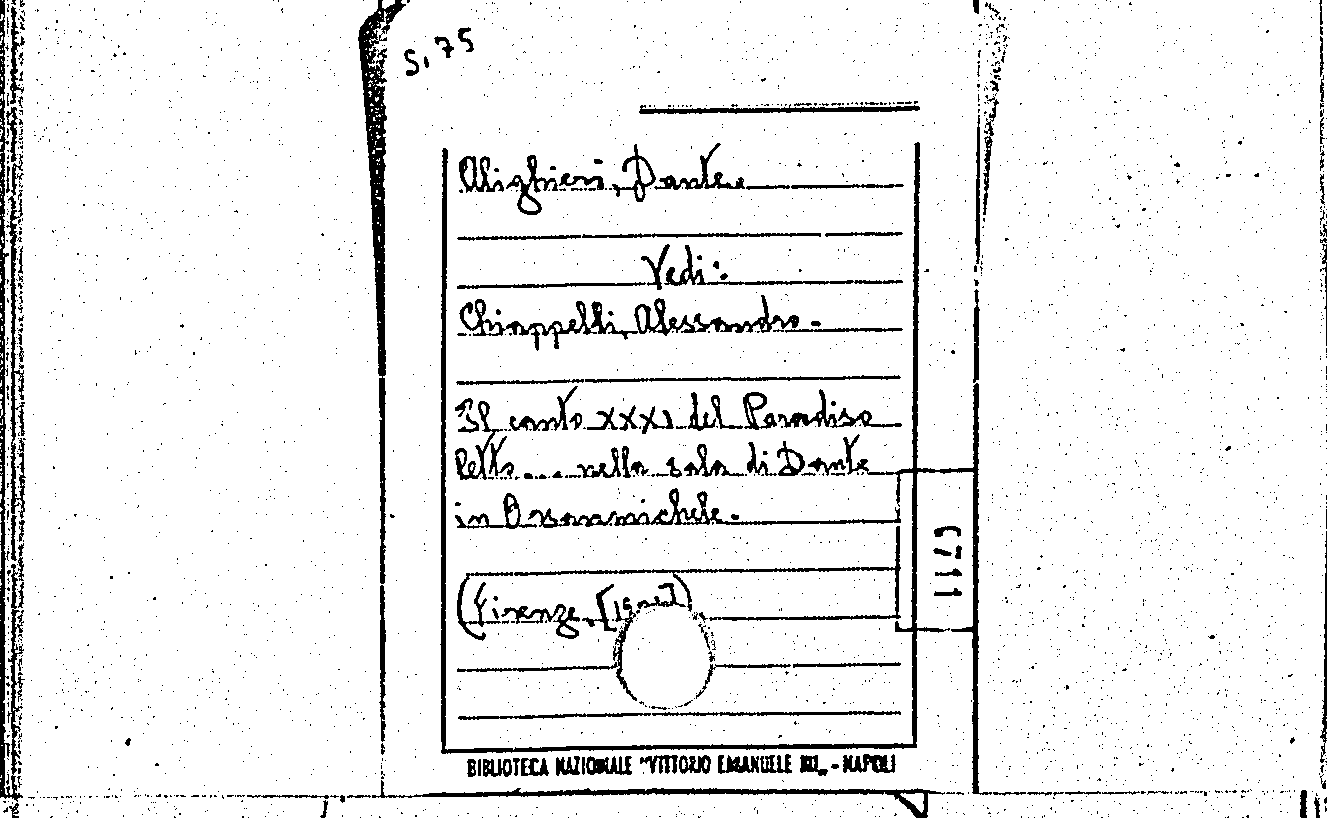 S. 75
Alighieri, Dante.
Vedi:
Chiappelli, Alessandro.-
Il canto XXXI del Paradiso
letto.... nella sala di Dante
in Orsanmichele.-
(Firenze,
6711
BIBLIOTECA NAZIONALE "VITTORIO EMANUELE III„ - NAPOLI